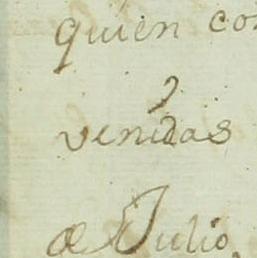 quien co
venidas
de Julio,